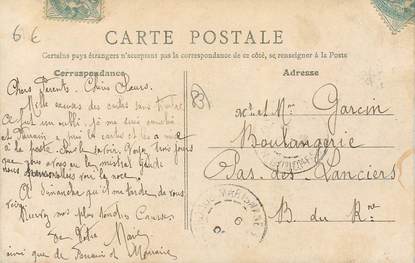 6 €
CARTE POSTALE
Certains pays étrangers n'acceptant pas la correspondance de ce côté, se renseigner à la Poste
Correspondance
Chers Parents. Chères Sœurs.
Mille excuses des cartes sans timbre
C'est un oubli. je me suis
et Parrain a pris la cartes et les a mise
à la poste sans le savoir. Voici trois jours
que nous avons eu le mistral
nous la noce
A Dimanche qu'il me tarde de vous
voir
Recevez nos plus tendres Caresses
De Votre Marie
ainsi que de Parrain et Marraine
83
Adresse
M. et Mme Garcin
Boulangerie
Pas. des. Lanciers
B. du R.ne